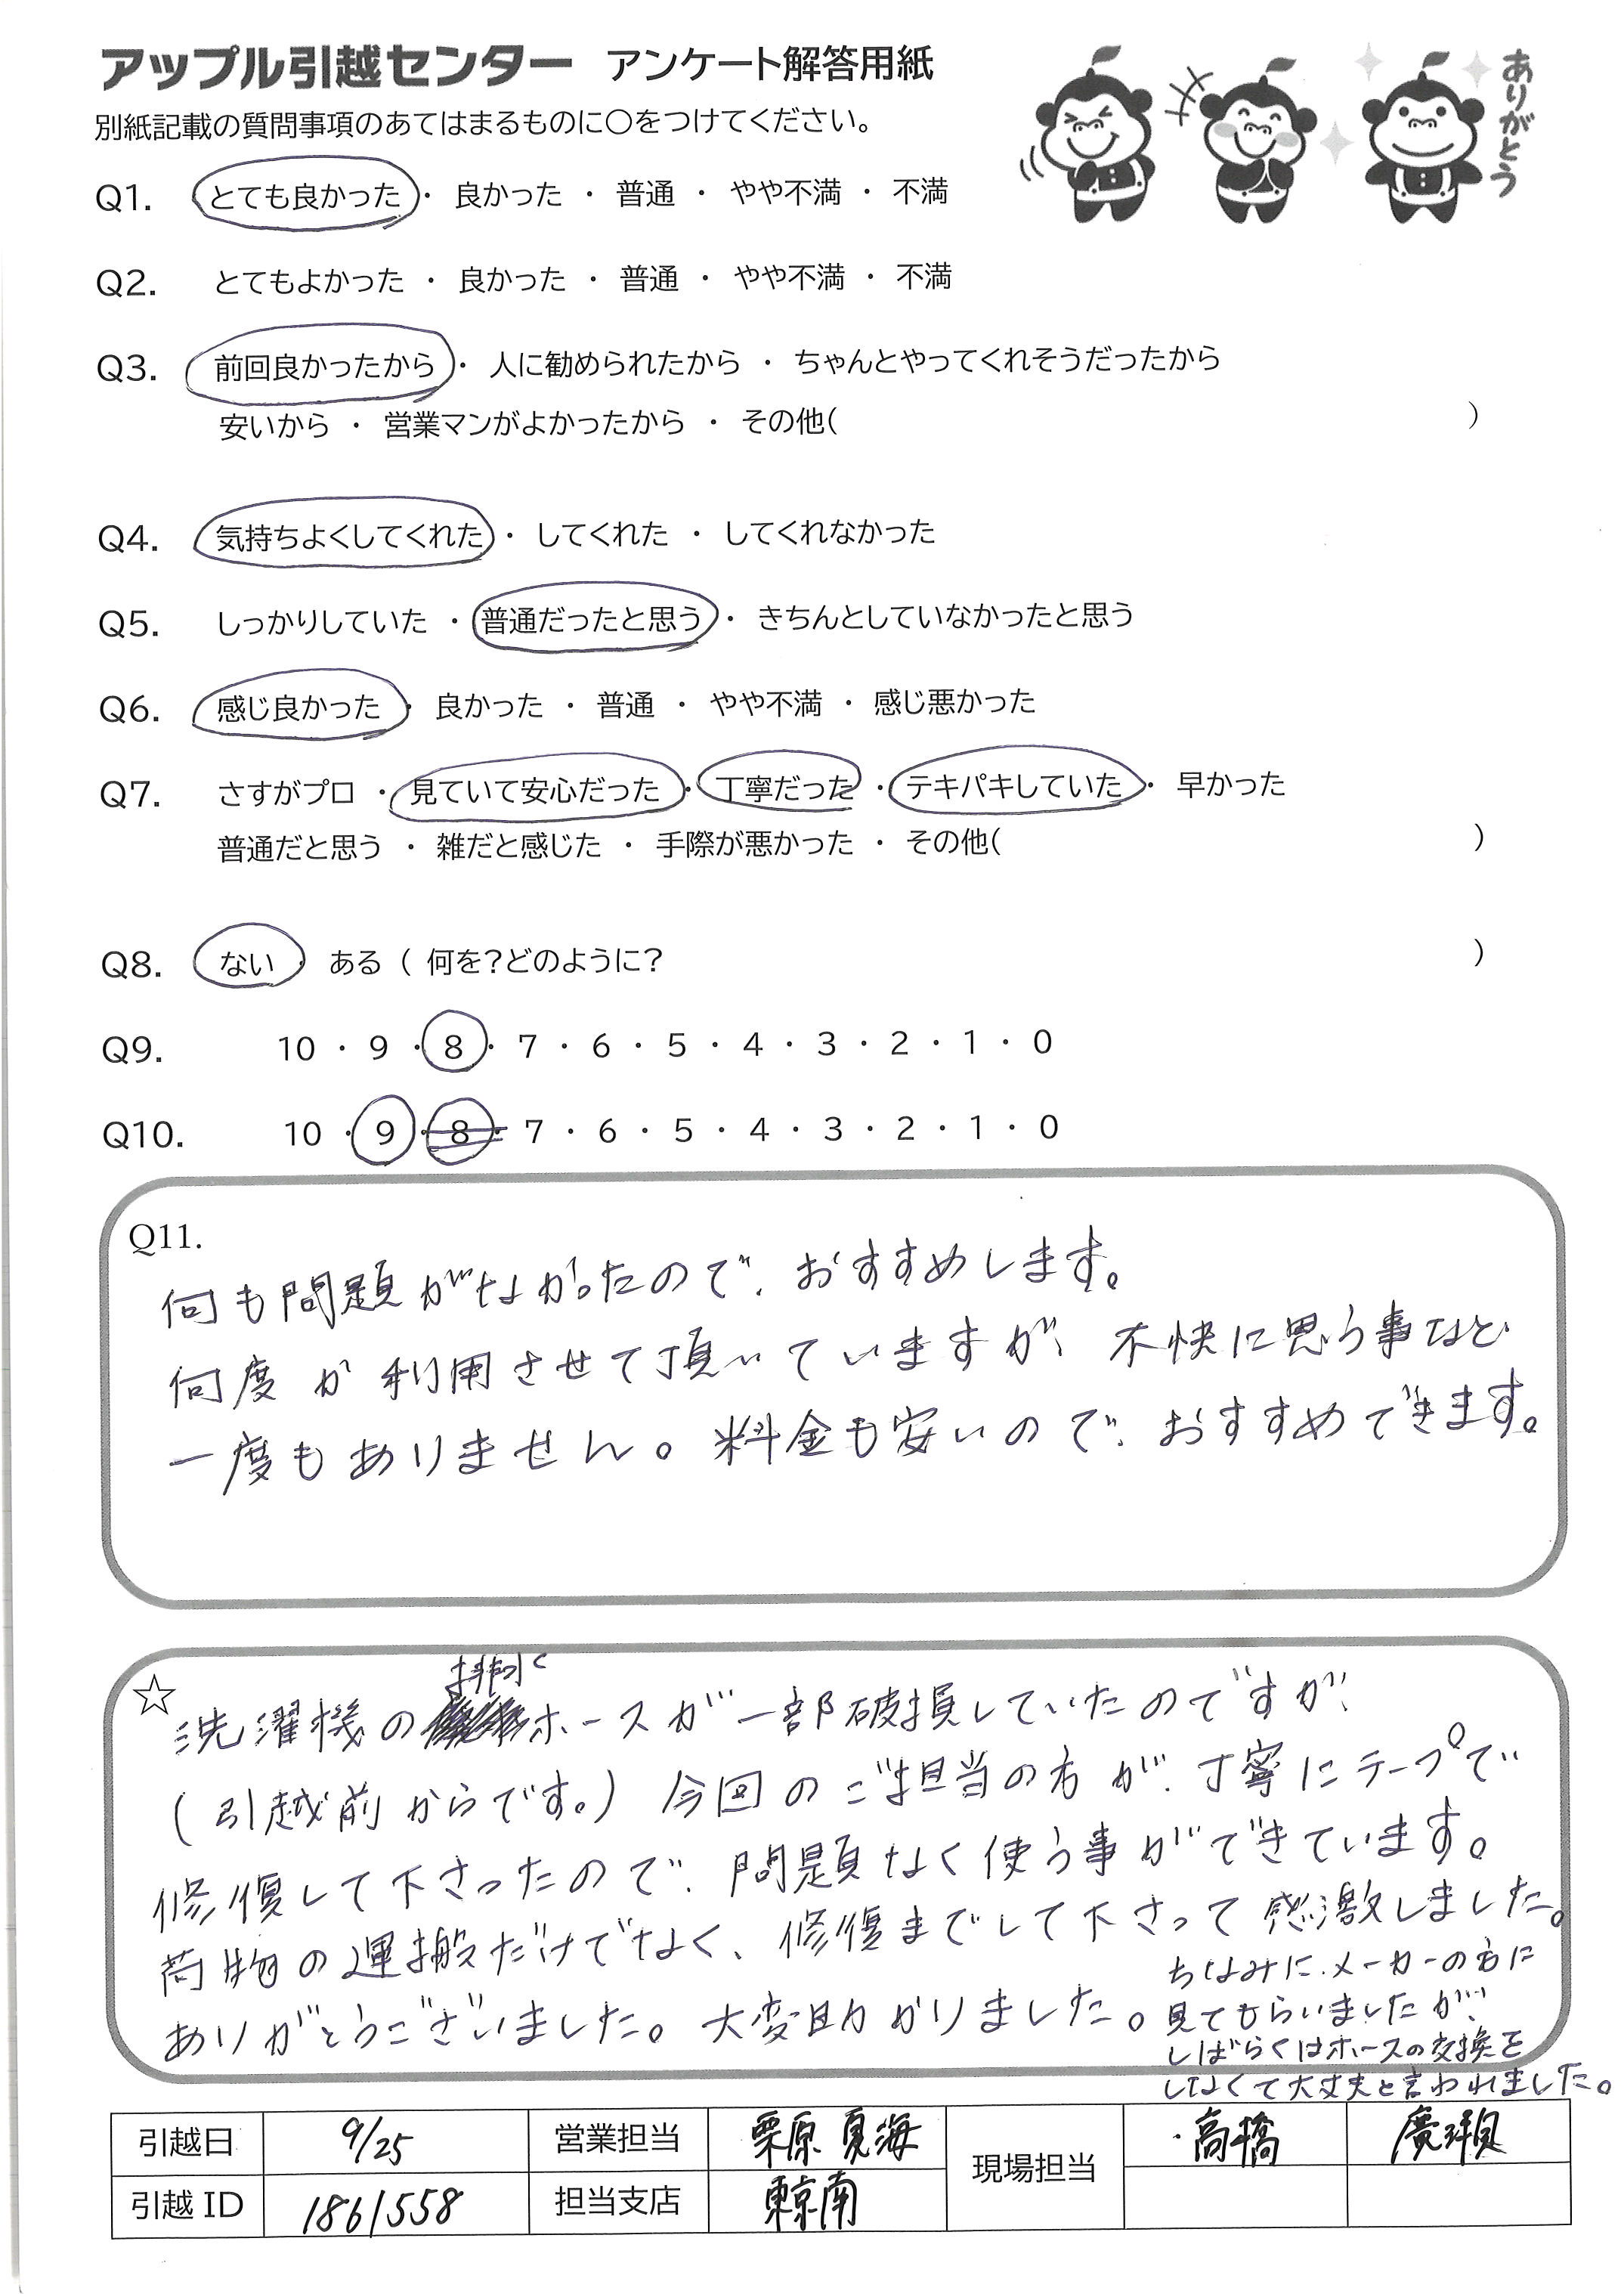 アップル引越センター アンケート解答用紙
ありがとう
別紙記載の質問事項のあてはまるものに〇をつけてください。
Q1. とても良かった ・ 良かった ・ 普通 ・ やや不満 ・ 不満
Q2. とてもよかった ・ 良かった ・ 普通 ・ やや不満 ・ 不満
Q3. 前回良かったから ・ 人に勧められたから ・ ちゃんとやってくれそうだったから
安いから ・ 営業マンがよかったから ・ その他( )
Q4. 気持ちよくしてくれた ・ してくれた ・ してくれなかった
Q5. しっかりしていた ・ 普通だったと思う ・ きちんとしていなかったと思う
Q6. 感じ良かった ・ 良かった ・ 普通 ・ やや不満 ・ 感じ悪かった
Q7. さすがプロ ・ 見ていて安心だった ・ 丁寧だった ・ テキパキしていた ・ 早かった
普通だと思う ・ 雑だと感じた ・ 手際が悪かった ・ その他( )
Q8. ない ある ( 何を?どのように? )
Q9. 10 ・ 9 ・ 8 ・ 7 ・ 6 ・ 5 ・ 4 ・ 3 ・ 2 ・ 1 ・ 0
Q10. 10 ・ 9 ・ 8 ・ 7 ・ 6 ・ 5 ・ 4 ・ 3 ・ 2 ・ 1 ・ 0
Q11.
何も問題がなかったので、おすすめします。
何度か利用させて頂いていますが、不快に思う事など
一度もありません。料金も安いので、おすすめできます。
☆
洗濯機の排水ホースが一部破損していたのですが、
(引越前からです。) 今回のご担当の方が、丁寧にテープで
修復して下さったので、問題なく使う事ができています。
荷物の運搬だけでなく、修復までして下さって感激しました。
ありがとうございました。大変助かりました。
ちなみに、メーカーの方に
見てもらいましたが、
しばらくはホースの交換を
しなくて大丈夫と言われました。
引越日 9/25 営業担当 栗原 夏海 現場担当 高橋 廣瀬
引越ID 1861558 担当支店 東京南